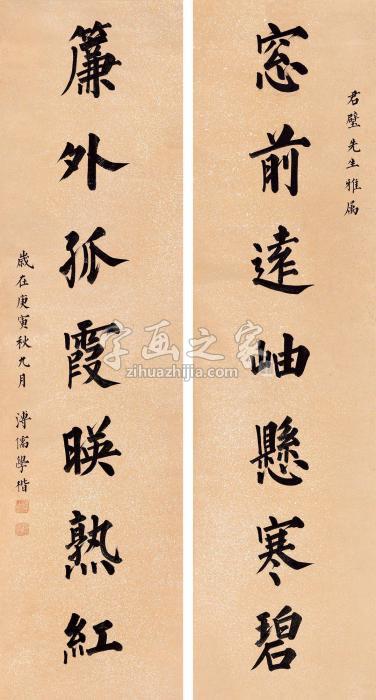 君璧先生雅属
窓前遠岫懸寒碧
簾外孤霞暎熟紅
歲在庚寅秋九月 溥儒學楷
字画之家
zihuazhijia.com
字画之家
zihuazhijia.com